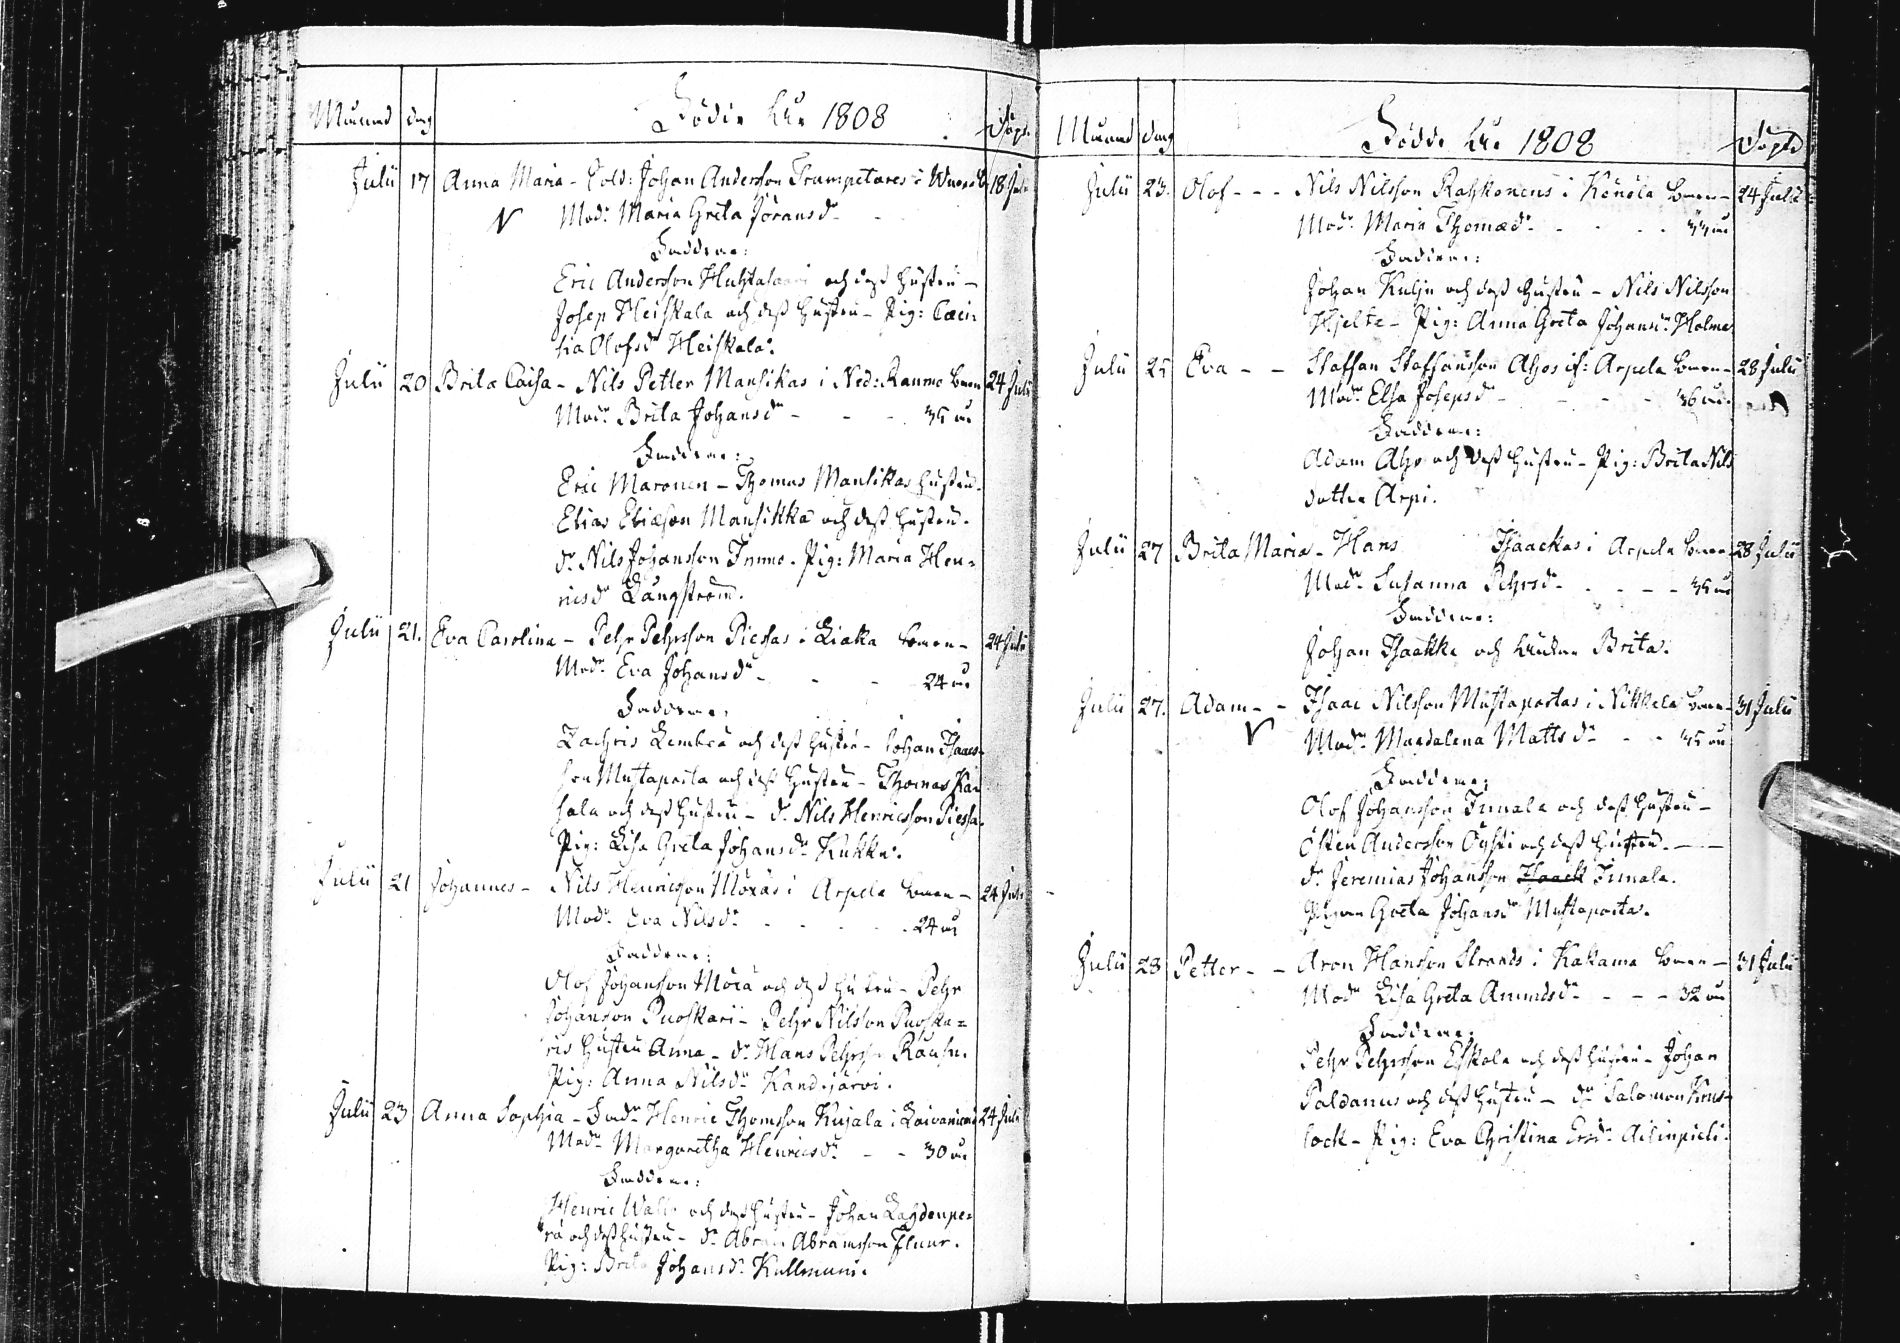 Månad dag Födde År 1808 Döpt.
Julii 17 Anna Maria - Sold: Johan Andersson Trumpetares i 18 Julii
Modr Maria Greta Jöransdr
Faddrar:
Eric Andersson Huhtasaari och dess hustru -
Josep Heiskala och dess hustru - Pig: Cæci-
lia Olofsdr Heiskala.
Julii 20 Brita Caisa - Nils Petter Mansikas i Ned: Raumo barn 24 Julii
Modr Brita Johansdr - - - 35 år
Faddrar:
Eric Maronen - Thomas Mansikas hustru.
Elias Eliæson Mansikka och dess hustru.
dr Nils Johansson Immo. Pig: Maria Hen-
ricsdr Långström.
Julii 21. Eva Carolina - Pehr Pehrsson Piessas i Liakka barn - 24 Julii
Modr Eva Johansdr - - - 24 år
Faddrar:
Zachris Lembra och dess hustru - Johan Isaacs-
son Mustaparta och dess hustru - Thomas
och dess hustru - dr Nils Henricsson Piessa.
Pig: Lisa Greta Johansdr Kukko.
Julii 21 Johannes - Nils Henricson Möräs i Arpela barn - 24 Julii
Modr Eva Nilsdr - - - 24 år
Faddrar:
Olof Johanson Mörä och dess hustru - Pehr
Johanson Puoskari - Pehr Nilsson Puoska-
ris hustru Anna - dr Hans Pehrss.
Pig: Anna Nilsdr Kandejärvi.
Julii 23 Anna Sophia - Henric Thomsson Kujala i 24 Julii
Modr Margaretha Henricsdr - - 30 år
Faddrar:
Henric och dess hustru - Johan Lahdenpe-
rä och dess hustru - dr Abram Abramsson
Pig: Brita Johansdr
Månad dag Födde År 1808 Döpte
Julii 23. Olof - - - Nils Nilsson Rahkonens i Könölä barn - 24 Julii
Modr Maria Thomædr - - - 44 år
Faddrar:
Johan Kuljo och dess hustru - Nils Nilsson
Hjelte - Pig: Anna Greta Johansdr Holma
Julii 25 Eva - - Staffan Staffansson Ahos i Arpela barn - 28 Julii
Modr Elsa Josepsdr - - - 36 år
Faddrar:
Adam Aho och dess hustru - Pig: Brita Nils
dotter Arpi.
Julii 27 Brita Maria - Hans Isaackas i Arpela barn 28 Julii
Modr Susanna Pehrsdr - - - 35 år
Faddrar:
Johan Isaakka och Brita.
Julii 27. Adam - - Isaac Nilsson Mustapartas i Nikkala barn - 31 Julii
Modr Magdalena Mattsdr - - 35 år
Faddrar:
Olof Johansson Immala och dess hustru -
Östen Andersson och dess hustru. -
dr Jeremias Johansson Isaack Immala.
Pigan Greta Johansdr Mustaparta.
Julii 28 Petter - - Aron Hansson Strands i Kakama barn - 31 Julii
Modr Lisa Greta Amundsdr - - - 32 år
Faddrar:
Pehr Pehrsson Eskola och dess hustru - Johan
Paldanus och dess hustru - dr Salomon Krus-
lock - Pig: Eva Christina Ersdr Ailinpieti.